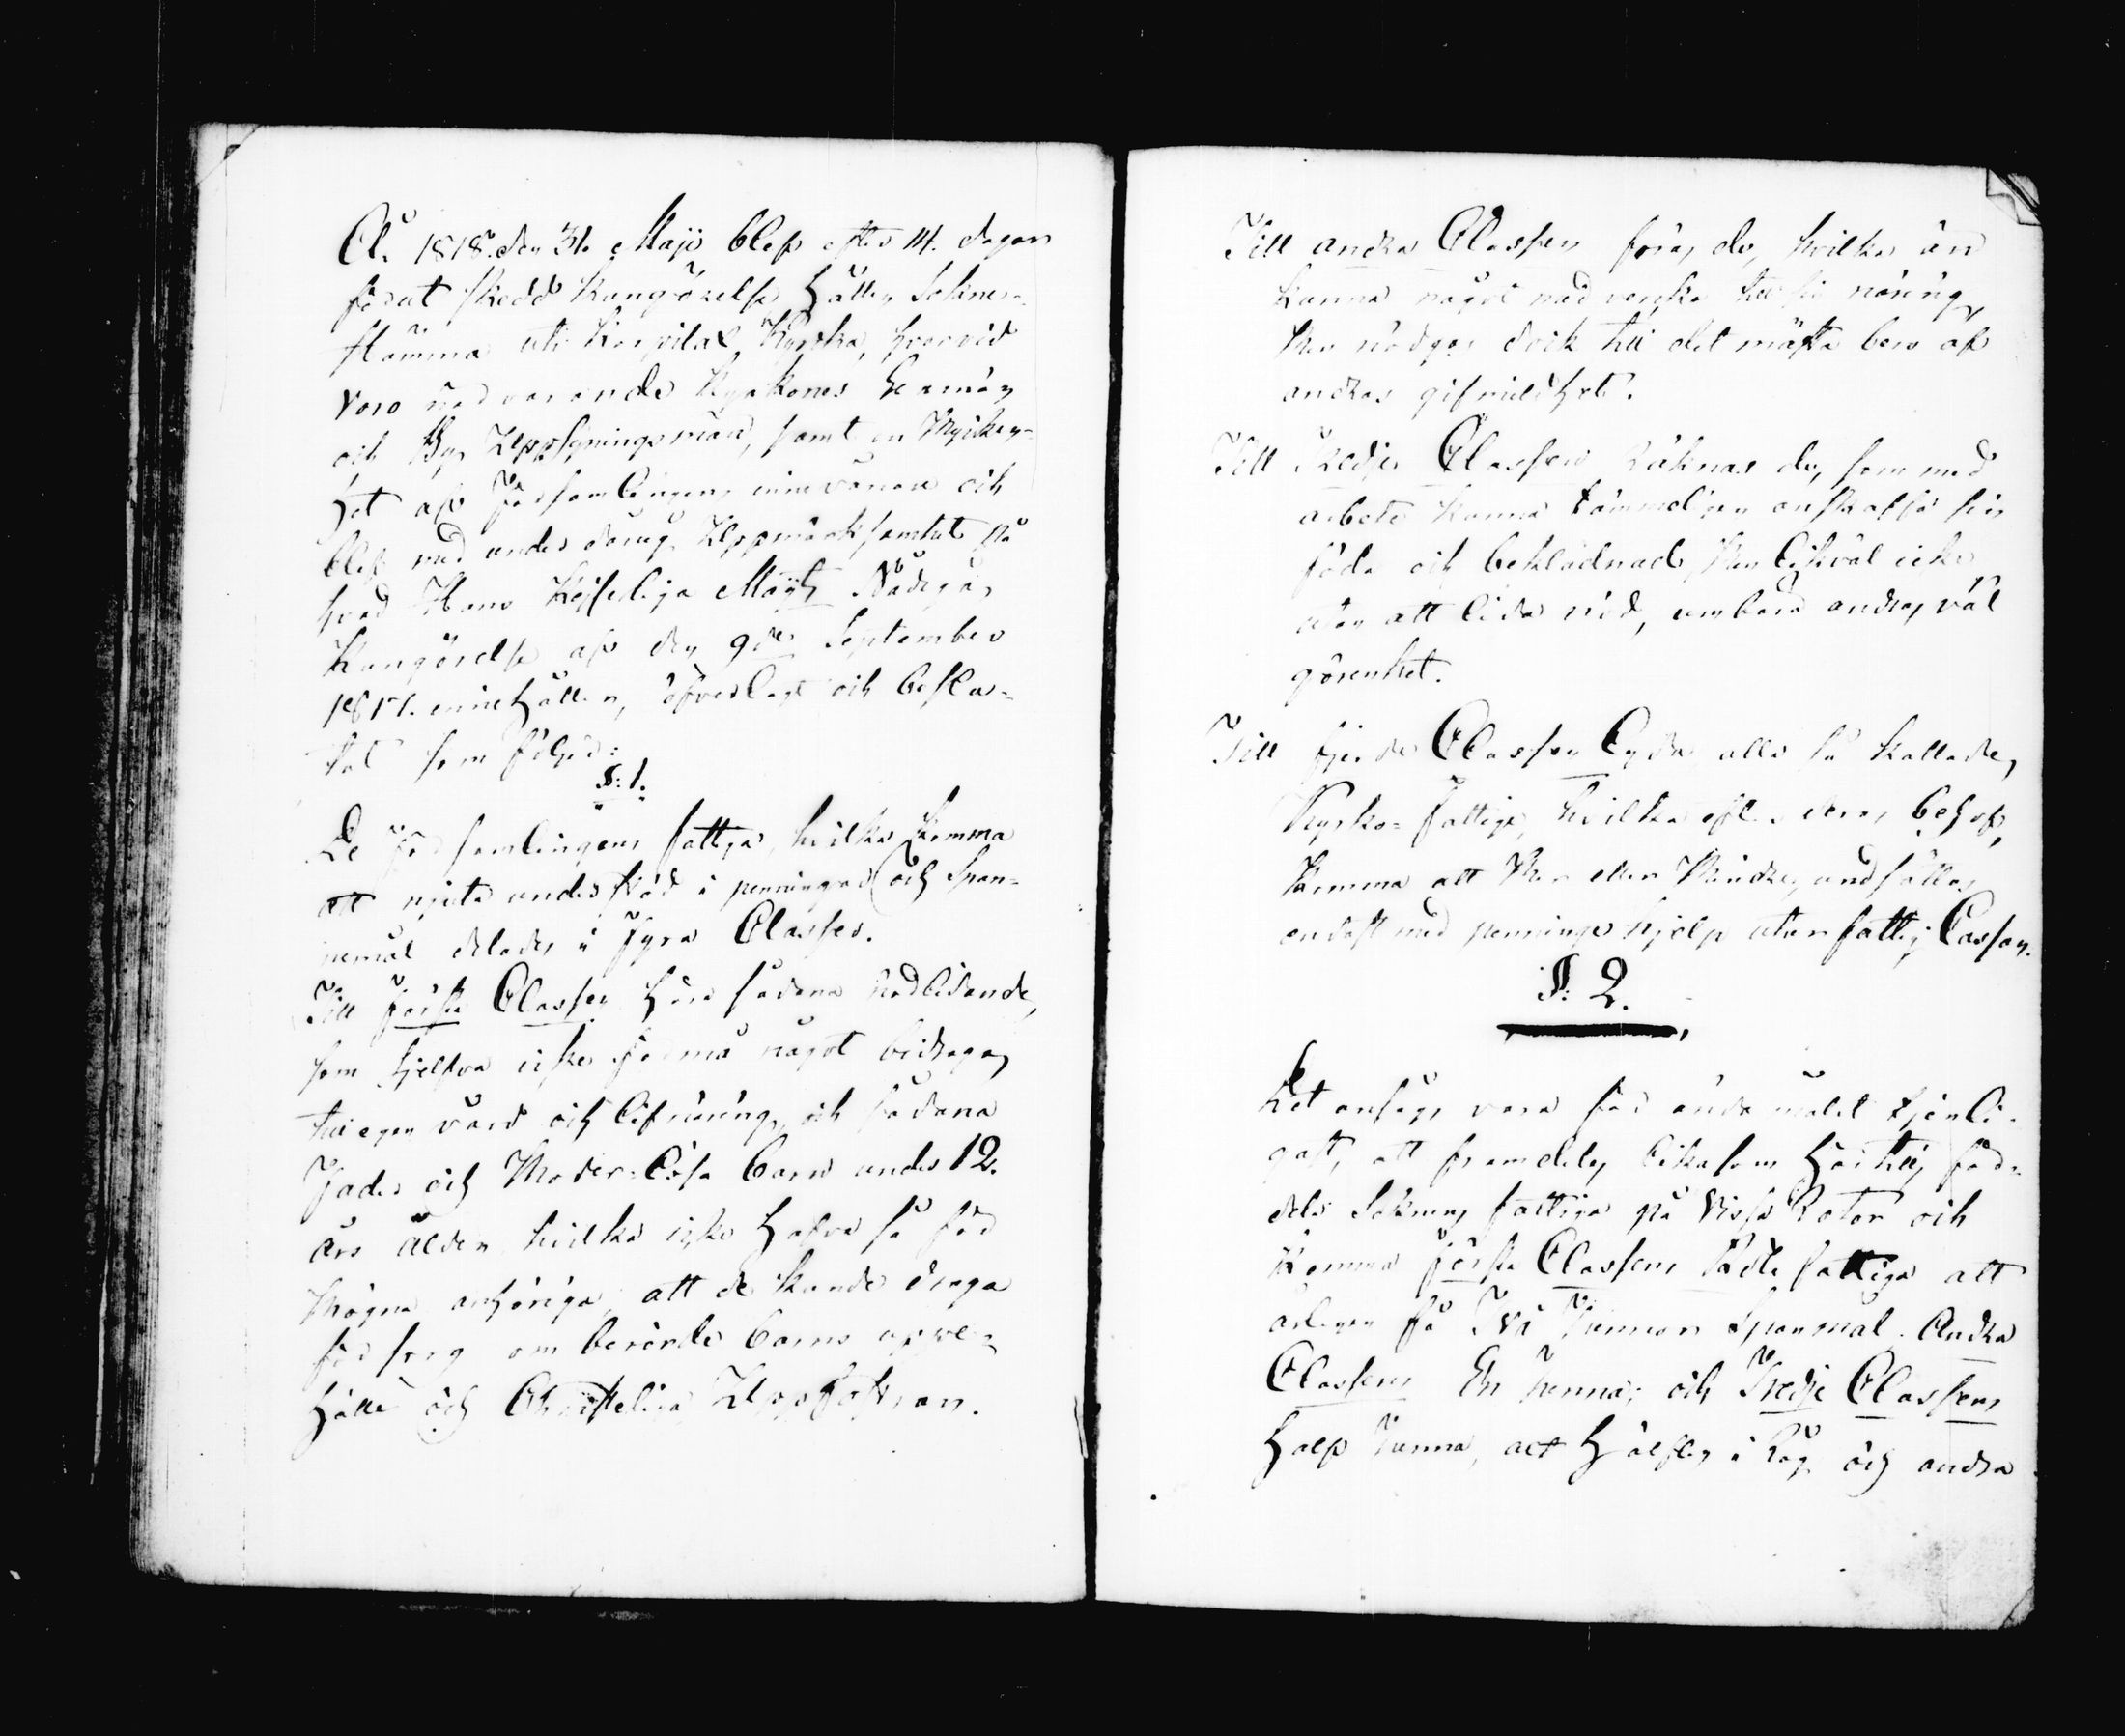 År 1818. den 31. Maji blef efter 14. dagar
förut skedd kungörelse hållen Sokne-
stämma uti Hospitals Kyrka, hvarvid
voro närvarande Kyrkones Sexmän
och By Uppsyningsmän, samt en Myckenhet
het af Församlingens innevånare och
blef med underdånig Uppmärksamhet på
hvad Hans Kejserliga Maj:ts Nådiga
Kungörelse af den 9de September
1817. innehåller, öfverlagt och beslu-
tat som följer:
§: 1.
De Församlingens fattiga, hvilka komma
att njuta understöd i penningar och Span-
nemål delades i Fyra Classer.
Till Första Classen höra sådana Nödlidande,
som sjelfva icke förmå något bidraga
till egen vård och lifnäring, och sådana
Fader och Moder-Lösa barn under 12.
års ålder hvilka icke hafva så för
Mögna anhöriga, att de kunde draga
försorg om berörde barns uppe-
hälle och Christeliga Uppfostran.
Till andra Classen föras de, hvilka än
kunna något medverka till sin näring,
Men nödgas dock till det mästa bero af
andras gifmildhet.
Till Tredje Classen Räknas de, som med
arbete kunna tämmeligen anskaffa sin
föda och beklädnad, Men likväl icke
utan att lida nöd, umbära andras väl
görenhet.
Till fjerde Classen Lyda alla så kallade,
Kyrko-Fattige, hvilka efter deras behof,
komma att Mer eller Mindre, undsättas
endast med penninge hjelp utur fattig Cassan.
§: 2.
Det ansågs vara för ändamålet tjenli-
gast, att framdeles likasom härtills för-
dela Soknens fattiga på Vissa Rotar och
komma Första Classens Rote fattiga att
årligen få Två Tunnor Spanmål. Andra
Classens En Tunna; och Tredje Classens
Half Tunna, allt hälften i Råg och andra